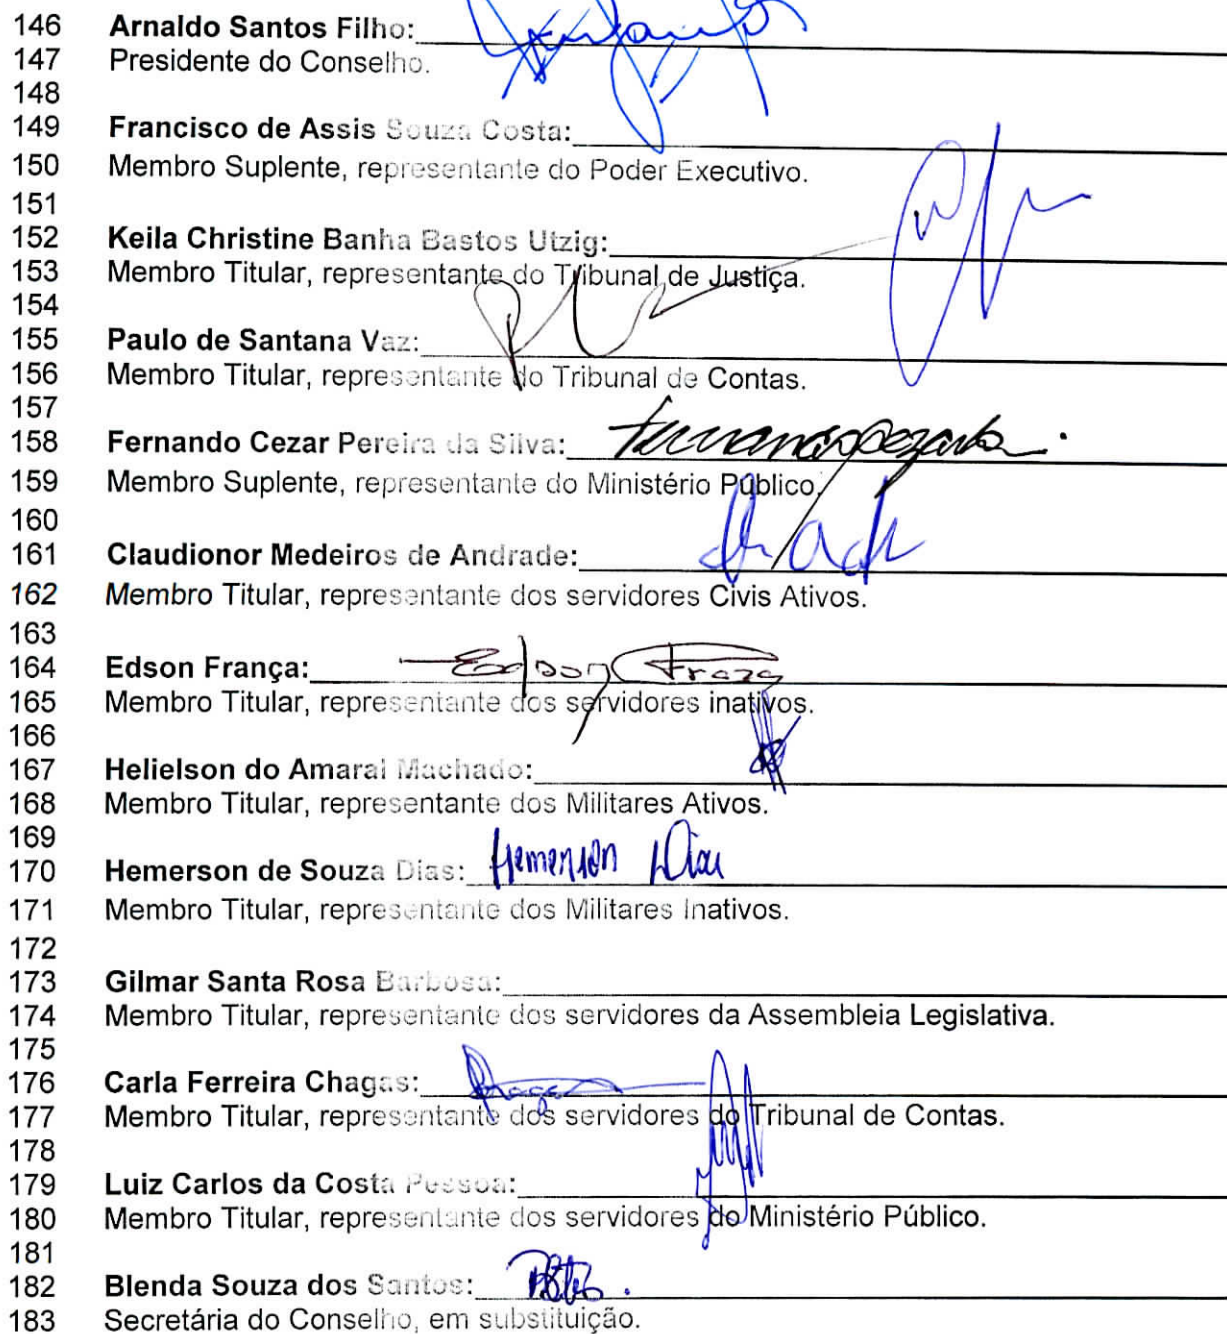 146 Arnaldo Santos Filho:
147 Presidente do Conselho.
148
149 Francisco de Assis Souza Costa:
150 Membro Suplente, representante do Poder Executivo.
151
152 Keila Christine Banha Bastos Utzig:
153 Membro Titular, representante do Tribunal de Justiça.
154
155 Paulo de Santana Vaz:
156 Membro Titular, representante do Tribunal de Contas.
157
158 Fernando Cezar Pereira da Silva:
159 Membro Suplente, representante do Ministério Público.
160
161 Claudionor Medeiros de Andrade:
162 Membro Titular, representante dos servidores Civis Ativos.
163
164 Edson França: Edson França
165 Membro Titular, representante dos servidores inativos.
166
167 Helielson do Amaral Machado:
168 Membro Titular, representante dos Militares Ativos.
169
170 Hemerson de Souza Dias: Hemerson Dias
171 Membro Titular, representante dos Militares Inativos.
172
173 Gilmar Santa Rosa Barbosa:
174 Membro Titular, representante dos servidores da Assembleia Legislativa.
175
176 Carla Ferreira Chagas:
177 Membro Titular, representante dos servidores do Tribunal de Contas.
178
179 Luiz Carlos da Costa Pessoa:
180 Membro Titular, representante dos servidores do Ministério Público.
181
182 Blenda Souza dos Santos:
183 Secretária do Conselho, em substituição.